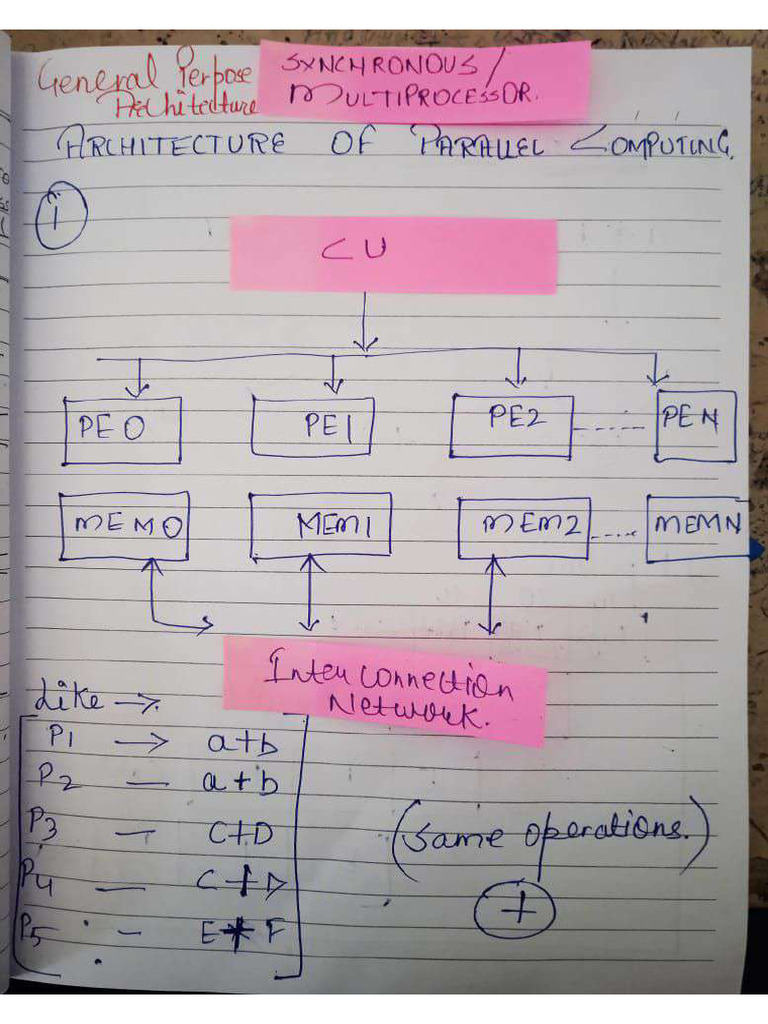 General Perpose
Architecture
SYNCHRONOUS/
MULTIPROCESSOR.
ARCHITECTURE OF PARALLEL COMPUTING.
1
CU
PE0 PE1 PE2 ...... PEN
MEM0 MEM1 MEM2 ..... MEMN
Inter connection
Network.
Like →
P1 → a+b
P2 — a+b
P3 — C+D
P4 — C+D
P5 - E * F
(same operations.)
+